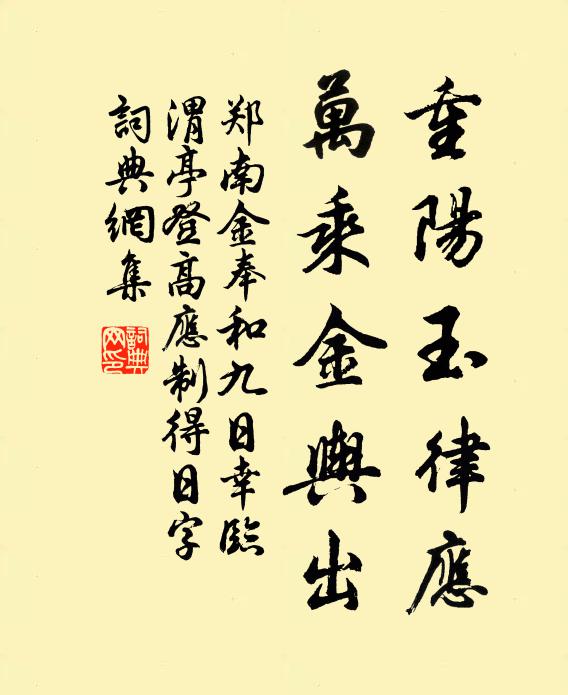 重陽玉律應
萬乘金輿出
郑南金奉和九日幸臨
渭亭登高應制得日字
詞典網集
詞典
网印